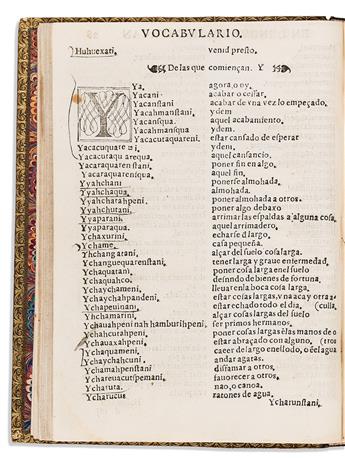 VOCABVLARIO.
Huhuexati. venid presto.
De las que comiençan. Y
Ya. agora, o oy.
Yacani acabar o cessar.
Yacanstani acabar de vna vez lo empeçado.
Yacahmanstani ydem
Yacansqua. aquel acabamiento.
Yacahmansqua ydem.
Yacacutaquareni. estar cansado de esperar
Yacacuquare ni. ydem
Yacacutaqua arequa. aquel cansancio.
Yacaraquaren stani poner fin en algo.
Yacaraquarensqua. aquel fin.
Yyahchani ponerse almohada.
Yyahchaqua. almohada.
Yyahcharahpeni. poner almohada a otros.
Yyahchutani. poner algo debaxo
Yyaparani. arrimar las espaldas a alguna cosa.
Yyaparaqua. aquel arrimadero.
Ychaxurini. echarse d̄l largo.
Ychame. casa pequeña.
Ychangarani. alçar del suelo cosa larga.
Ychanguequarenstani. tener larga y graue enfermedad.
Ychaquatani. poner cosa larga en el suelo
Ychaquahco. desnudo de bienes de fortuna.
Ychaychameni. llegar hasta el cabo cosa larga.
Ychaychahpandeni. estar cosas largas, vna acy otra a-
Ychapeuinani. estar echado todo el dia. (culla,
Ychamarini. alçar cosas largas del suelo
Ychauahpeni nah hamburihpeni. ser primos hermanos.
Ychahcurahpeni. poner cosas largas ēlas manos de o
Ychauaxahpeni. estar abraçado con alguno, (tros
Ychaquameni. caeer de largo en el lodo, o ēl agua
Ychaychahcuni. andar agatas.
Ychamahpenstani disfamar a otros.
Ycharuacutspemani. fauorecer a otros.
Ycharuta. nao, o canoa.
Ycharucus ratones de agua.
Ycharunstani.